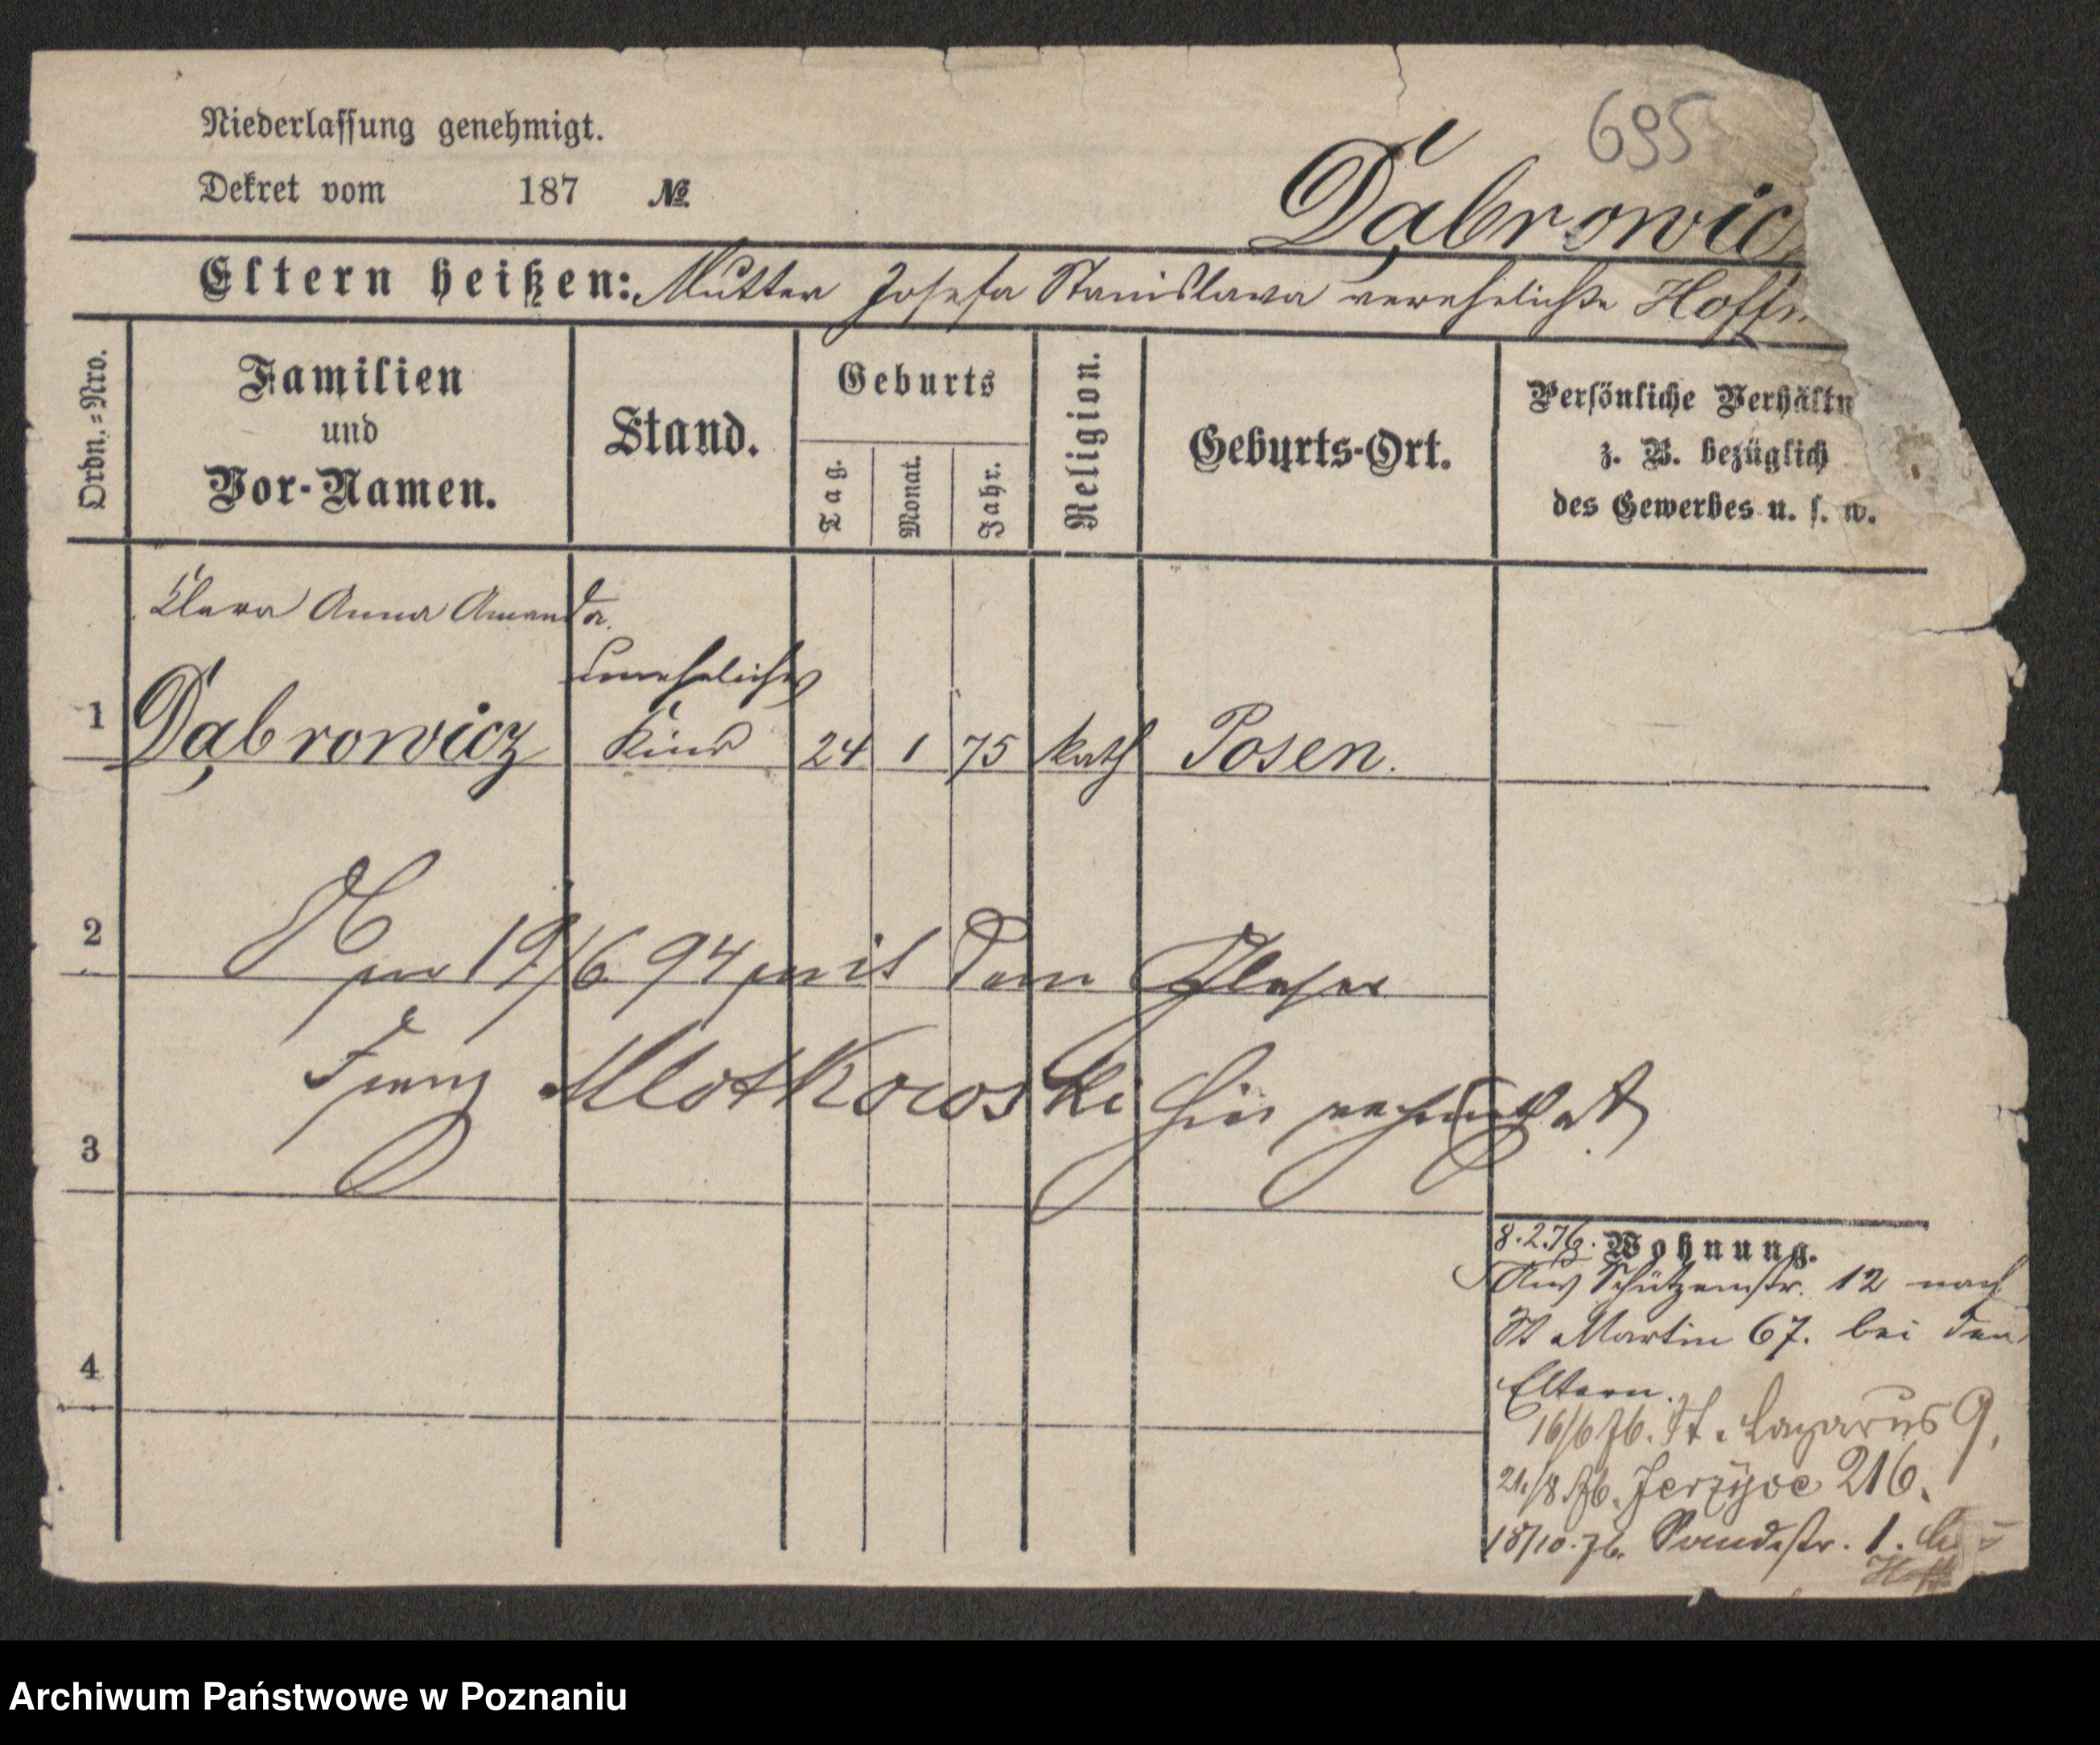 695
Niederlassung genehmigt.
Dekret vom 187 №
Dąbrowic
Eltern heißen: Mutter Josefa Stanislava verehelichte Hoffm
Ordn.=Nro.
Familien
und
Vor-Namen.
Stand.
Geburts
Tag.
Monat.
Jahr.
Religion.
Geburts-Ort.
Persönliche Verhältn
z. B. bezüglich
des Gewerbes u. s. w.
Clara Anna Amanda.
1 Dąbrowicz
uneheliches
Kind
24 1 75 kath Posen.
2
19/6 94 mit dem
Franz Mlotkowski hier
3
8.2.76. Wohnung.
Aus Schützenstr. 12 nach
St Martin 67. bei den
Eltern.
4
16/6 76. St. Lazarus 9,
21/8 76. Jerzyce 216.
18/10. 76. Sandstr. 1.
Hoff
Archiwum Państwowe w Poznaniu